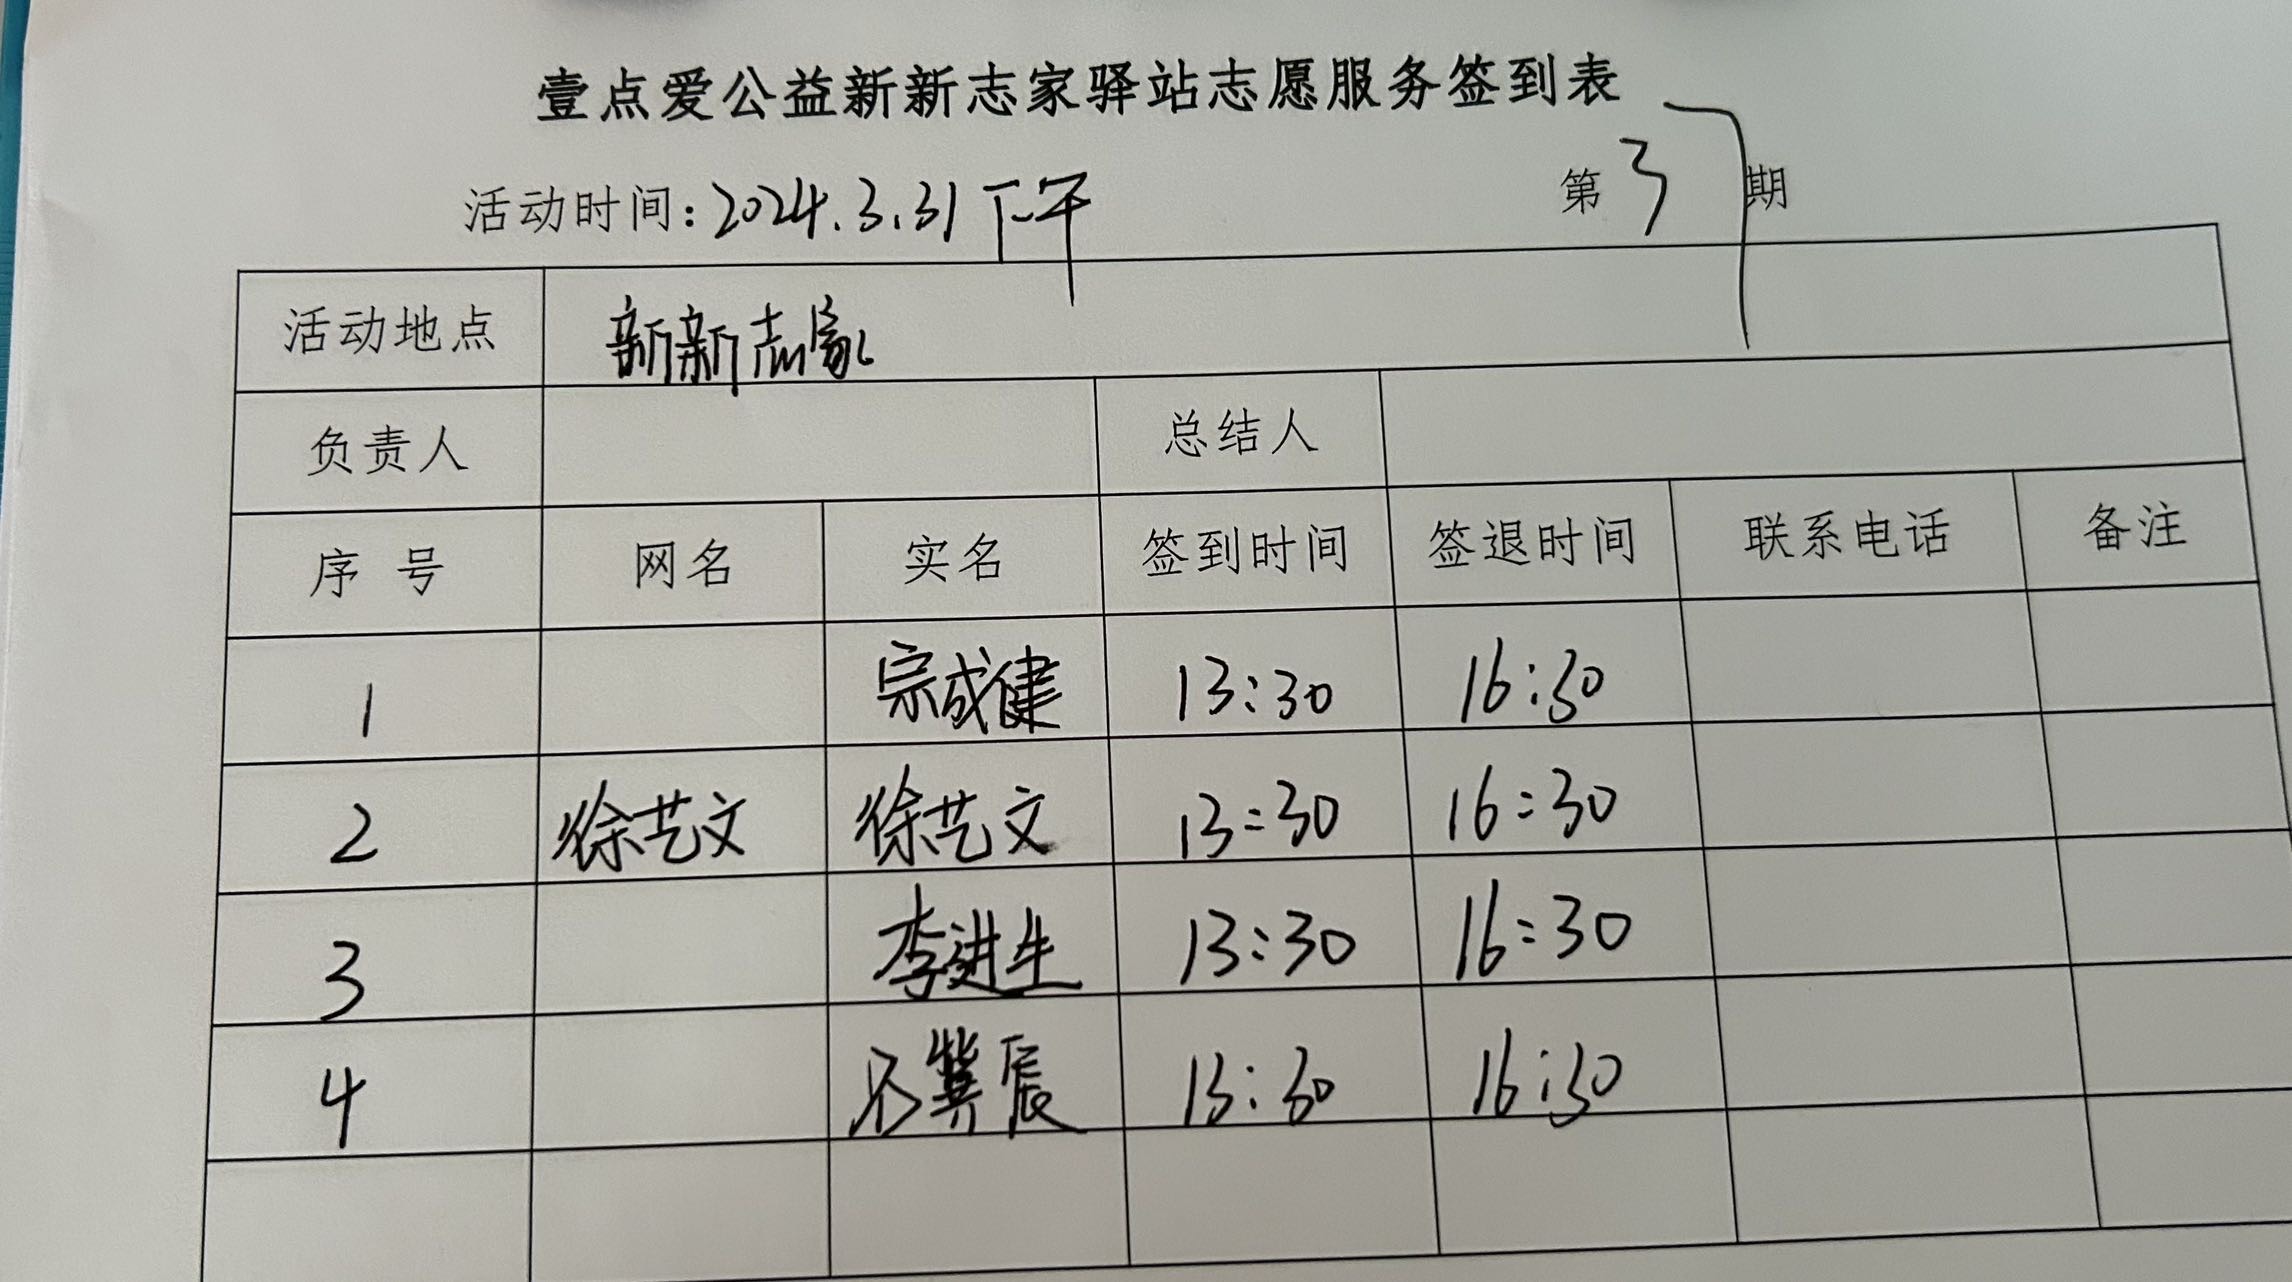 壹点爱公益新新志家驿站志愿服务签到表
活动时间:2024.3.31下午 第37期
活动地点 新新志家
负责人 总结人
序号 网名 实名 签到时间 签退时间 联系电话 备注
1 宗成健 13:30 16:30
2 徐艺文 徐艺文 13:30 16:30
3 李进生 13:30 16:30
4 石冀辰 13:30 16:30